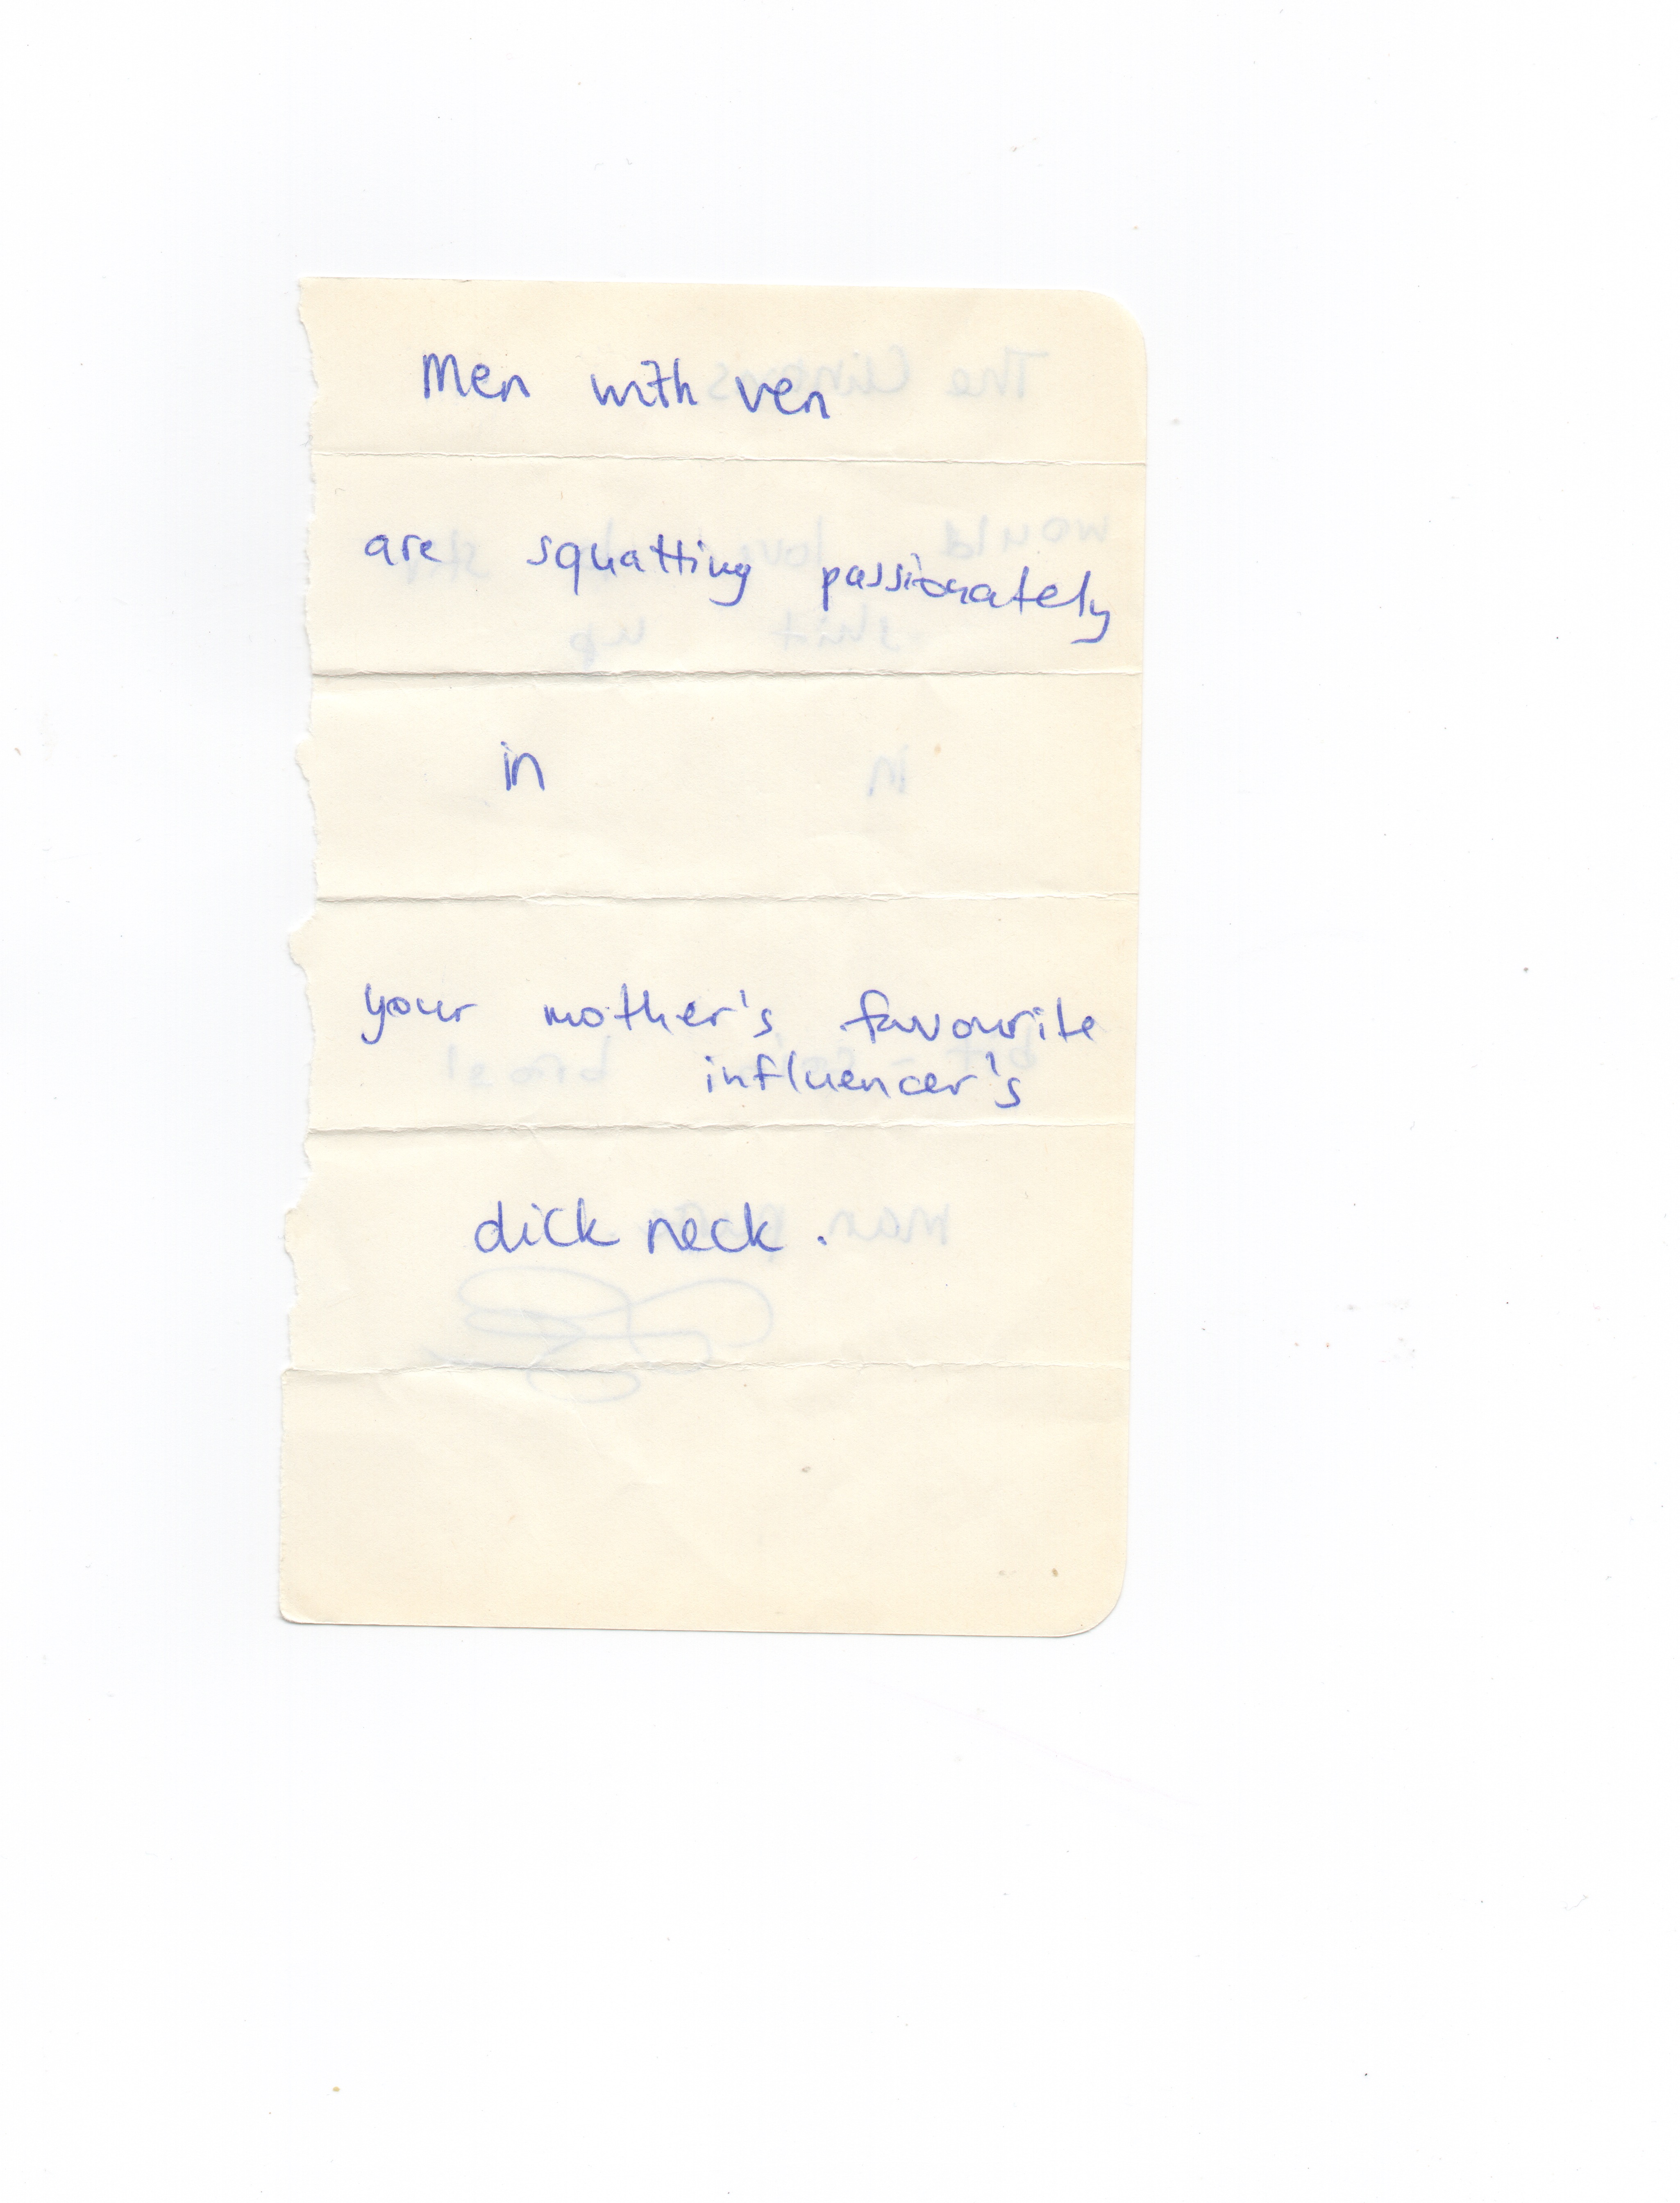 Men with ven
are squatting passionately
in
your mother's favourite
influencer's
dick neck.